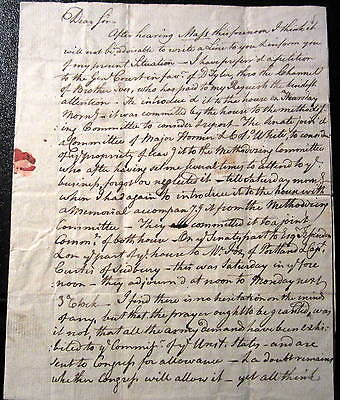 Dear Sir.
After hearing Mass this forenoon I think it
will not be adviseable to write a line to you & inform you
of my present Situation — I have prefer'd a petition
to the Genl Court in favr of D Tyler, thro the Channel
of Brother Ives, who has paid to my Request the kindest
attention — He introduced it to the house on Thursday
Morng — it was committed by the house to the methodis-
ing Committee to consider & report. The Senate join'd
a Committee of Major Hosmer & Col. White to consider
of ye propriety of leavg it to the Methodising Committee
who after having it some several times to attend to ye
business, forgot or neglected it — till Saturday morng
when I had again to introduce it to the house with
a Memorial accompany'g it from the Methodising
Committee — They committed it to a joint
Commee of both houses — On ye Senate part to
on ye part of ye house to Mr Fox of Portland & Capt.
Curtis of Sudbury — this was Saturday in ye fore
noon — they adjourn'd at noon to Monday next
3 oClock — I find there is no hesitation on the minds
of any, but that the prayer ought to be granted, was
it not, that all the army demands have been exhi-
bited to ye Commissrs of ye Unit. States — and are
sent to Congress for allowance — & a doubt remains
whether Congress will allow it — yet all think